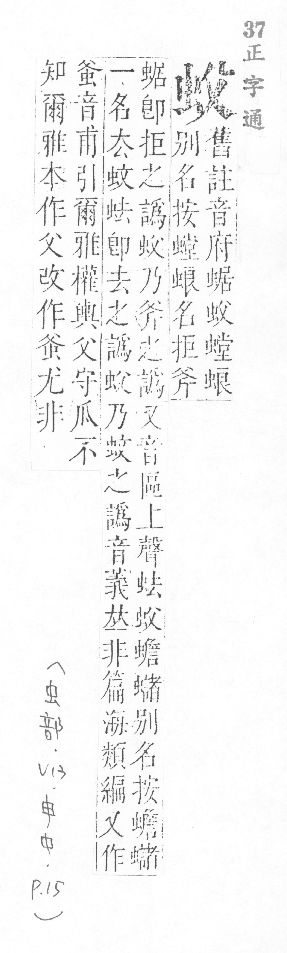 37正字通
蚥
舊註音府蜛蚥螳蜋
别名按螳蜋名拒斧
蜛卽拒之譌蚥乃斧之譌又音傴上聲蚥蟾蠩别名按蟾蠩
一名厺蚥卽去之譌蚥乃蚥之譌音義𠀤非篇海類編又作
音甫引爾雅權輿父守瓜不
知爾雅本作父改作尤非
(虫部.V13.申中.P.15)